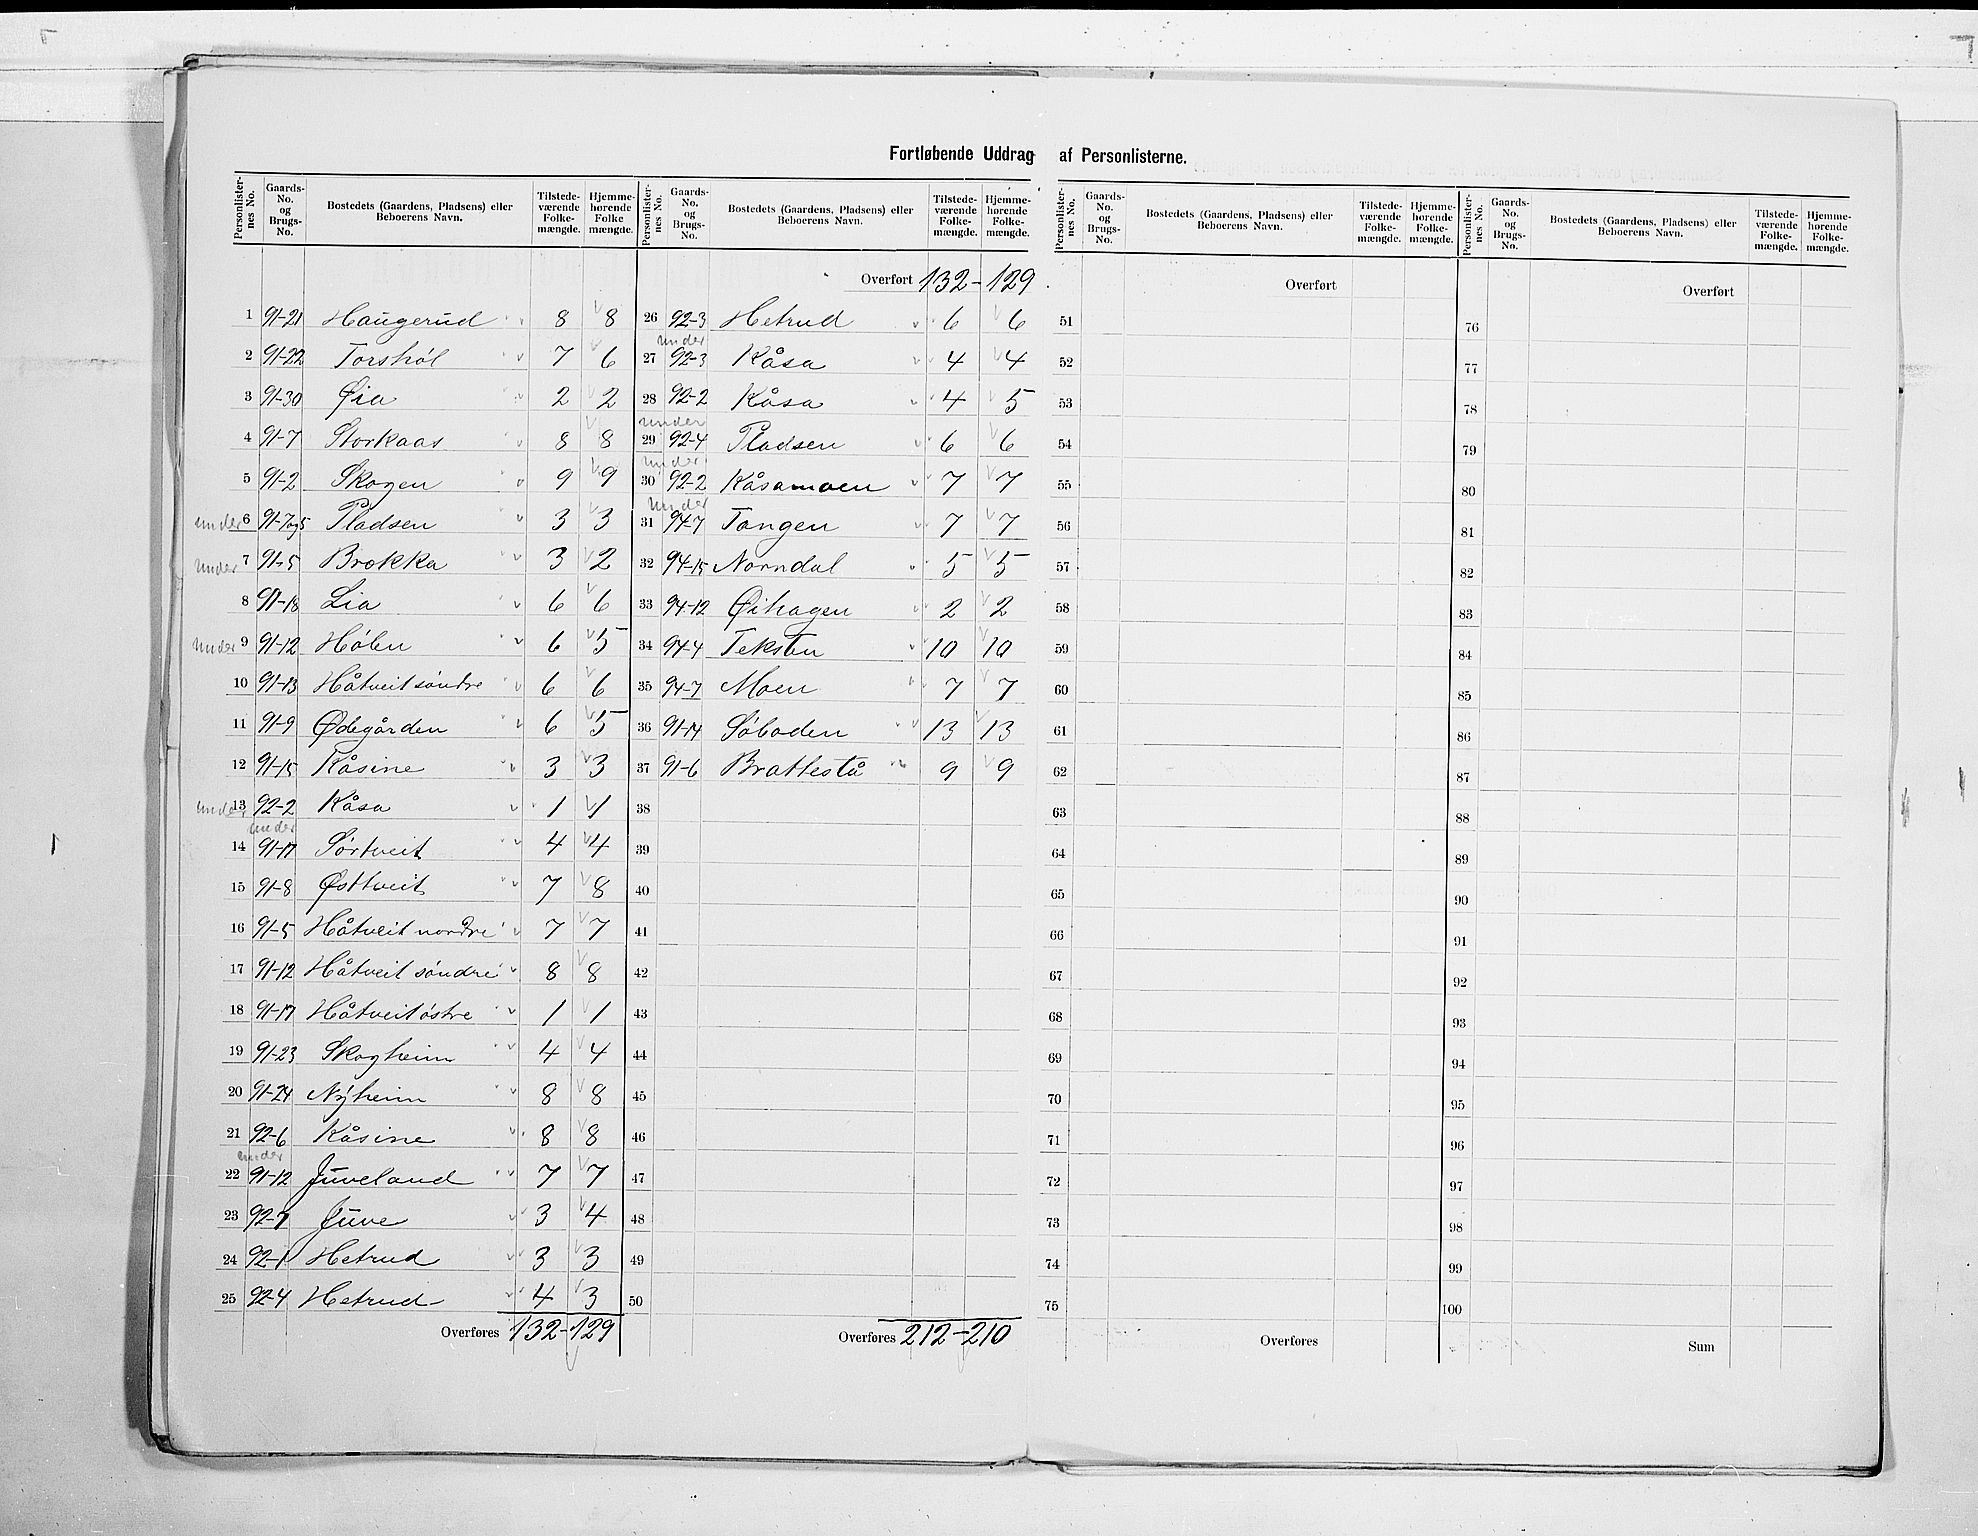 Fortløbende Uddrag af Personlisterne.
Personlister-nes No. | Gaards-No. og Brugs-No. | Bostedets (Gaardens, Pladsens) eller Beboerens Navn. | Tilstede-værende Folke-mængde. | Hjemme-hørende Folke mængde.
1 91-21 Haugerud 8 8
2 91-22 Torshól 7 6
3 91-30 Øia 2 2
4 91-7 Storkaas 8 8
5 91-2 Skogen 9 9
under 6 91-7og5 Pladsen 3 3
under 7 91-5 Brokka 3 2
8 91-18 Lia 6 6
under 9 91-12 Hólen 6 5
10 91-13 Håtveit søndre 6 6
11 91-9 Ødegården 6 5
12 91-15 Kåsine 3 3
under 13 92-2 Kåsa 1 1
under
14 91-17 Sørtveit 4 4
15 91-8 Østtveit 7 8
16 91-5 Håtveit nordre 7 7
17 91-12 Håtveit søndre 8 8
18 91-17 Håtveit østre 1 1
19 91-23 Skogheim 4 4
20 91-24 Nyheim 8 8
21 92-6 Kåsine 8 8
under
22 91-12 Juveland 7 7
23 92-7 Juve 3 4
24 92-1 Hetrud 3 3
25 92-4 Hetrud 4 3
Overføres 132-129
Personlister-nes No. | Gaards-No. og Brugs-No. | Bostedets (Gaardens, Pladsens) eller Beboerens Navn. | Tilstede-værende Folke-mængde. | Hjemme-hørende Folke-mængde.
Overført 132-129
26 92-3 Hetrud 6 6
under
27 92-3 Kåsa 4 4
28 92-2 Kåsa 4 5
under
29 92-4 Pladsen 6 6
under
30 92-2 Kåsamoen 7 7
under
31 94-7 Tangen 7 7
32 94-15 Norndal 5 5
33 94-12 Øihagen 2 2
34 94-4 Teksten 10 10
35 94-7 Moen 7 7
36 91-14 Søboden 13 13
37 91-6 Brattestå 9 9
38
39
40
41
42
43
44
45
46
47
48
49
50
Overføres 212-210
Personlister-nes No. | Gaards-No. og Brugs-No. | Bostedets (Gaardens, Pladsens) eller Beboerens Navn. | Tilstede-værende Folke-mængde. | Hjemme-hørende Folke-mængde.
Overført
51
52
53
54
55
56
57
58
59
60
61
62
63
64
65
66
67
68
69
70
71
72
73
74
75
Overføres
Personlister-nes No. | Gaards-No. og Brugs-No. | Bostedets (Gaardens, Pladsens) eller Beboerens Navn. | Tilstede-værende Folke-mængde. | Hjemme-hørende Folke-mængde.
Overført
76
77
78
79
80
81
82
83
84
85
86
87
88
89
90
91
92
93
94
95
96
97
98
99
100
Sum